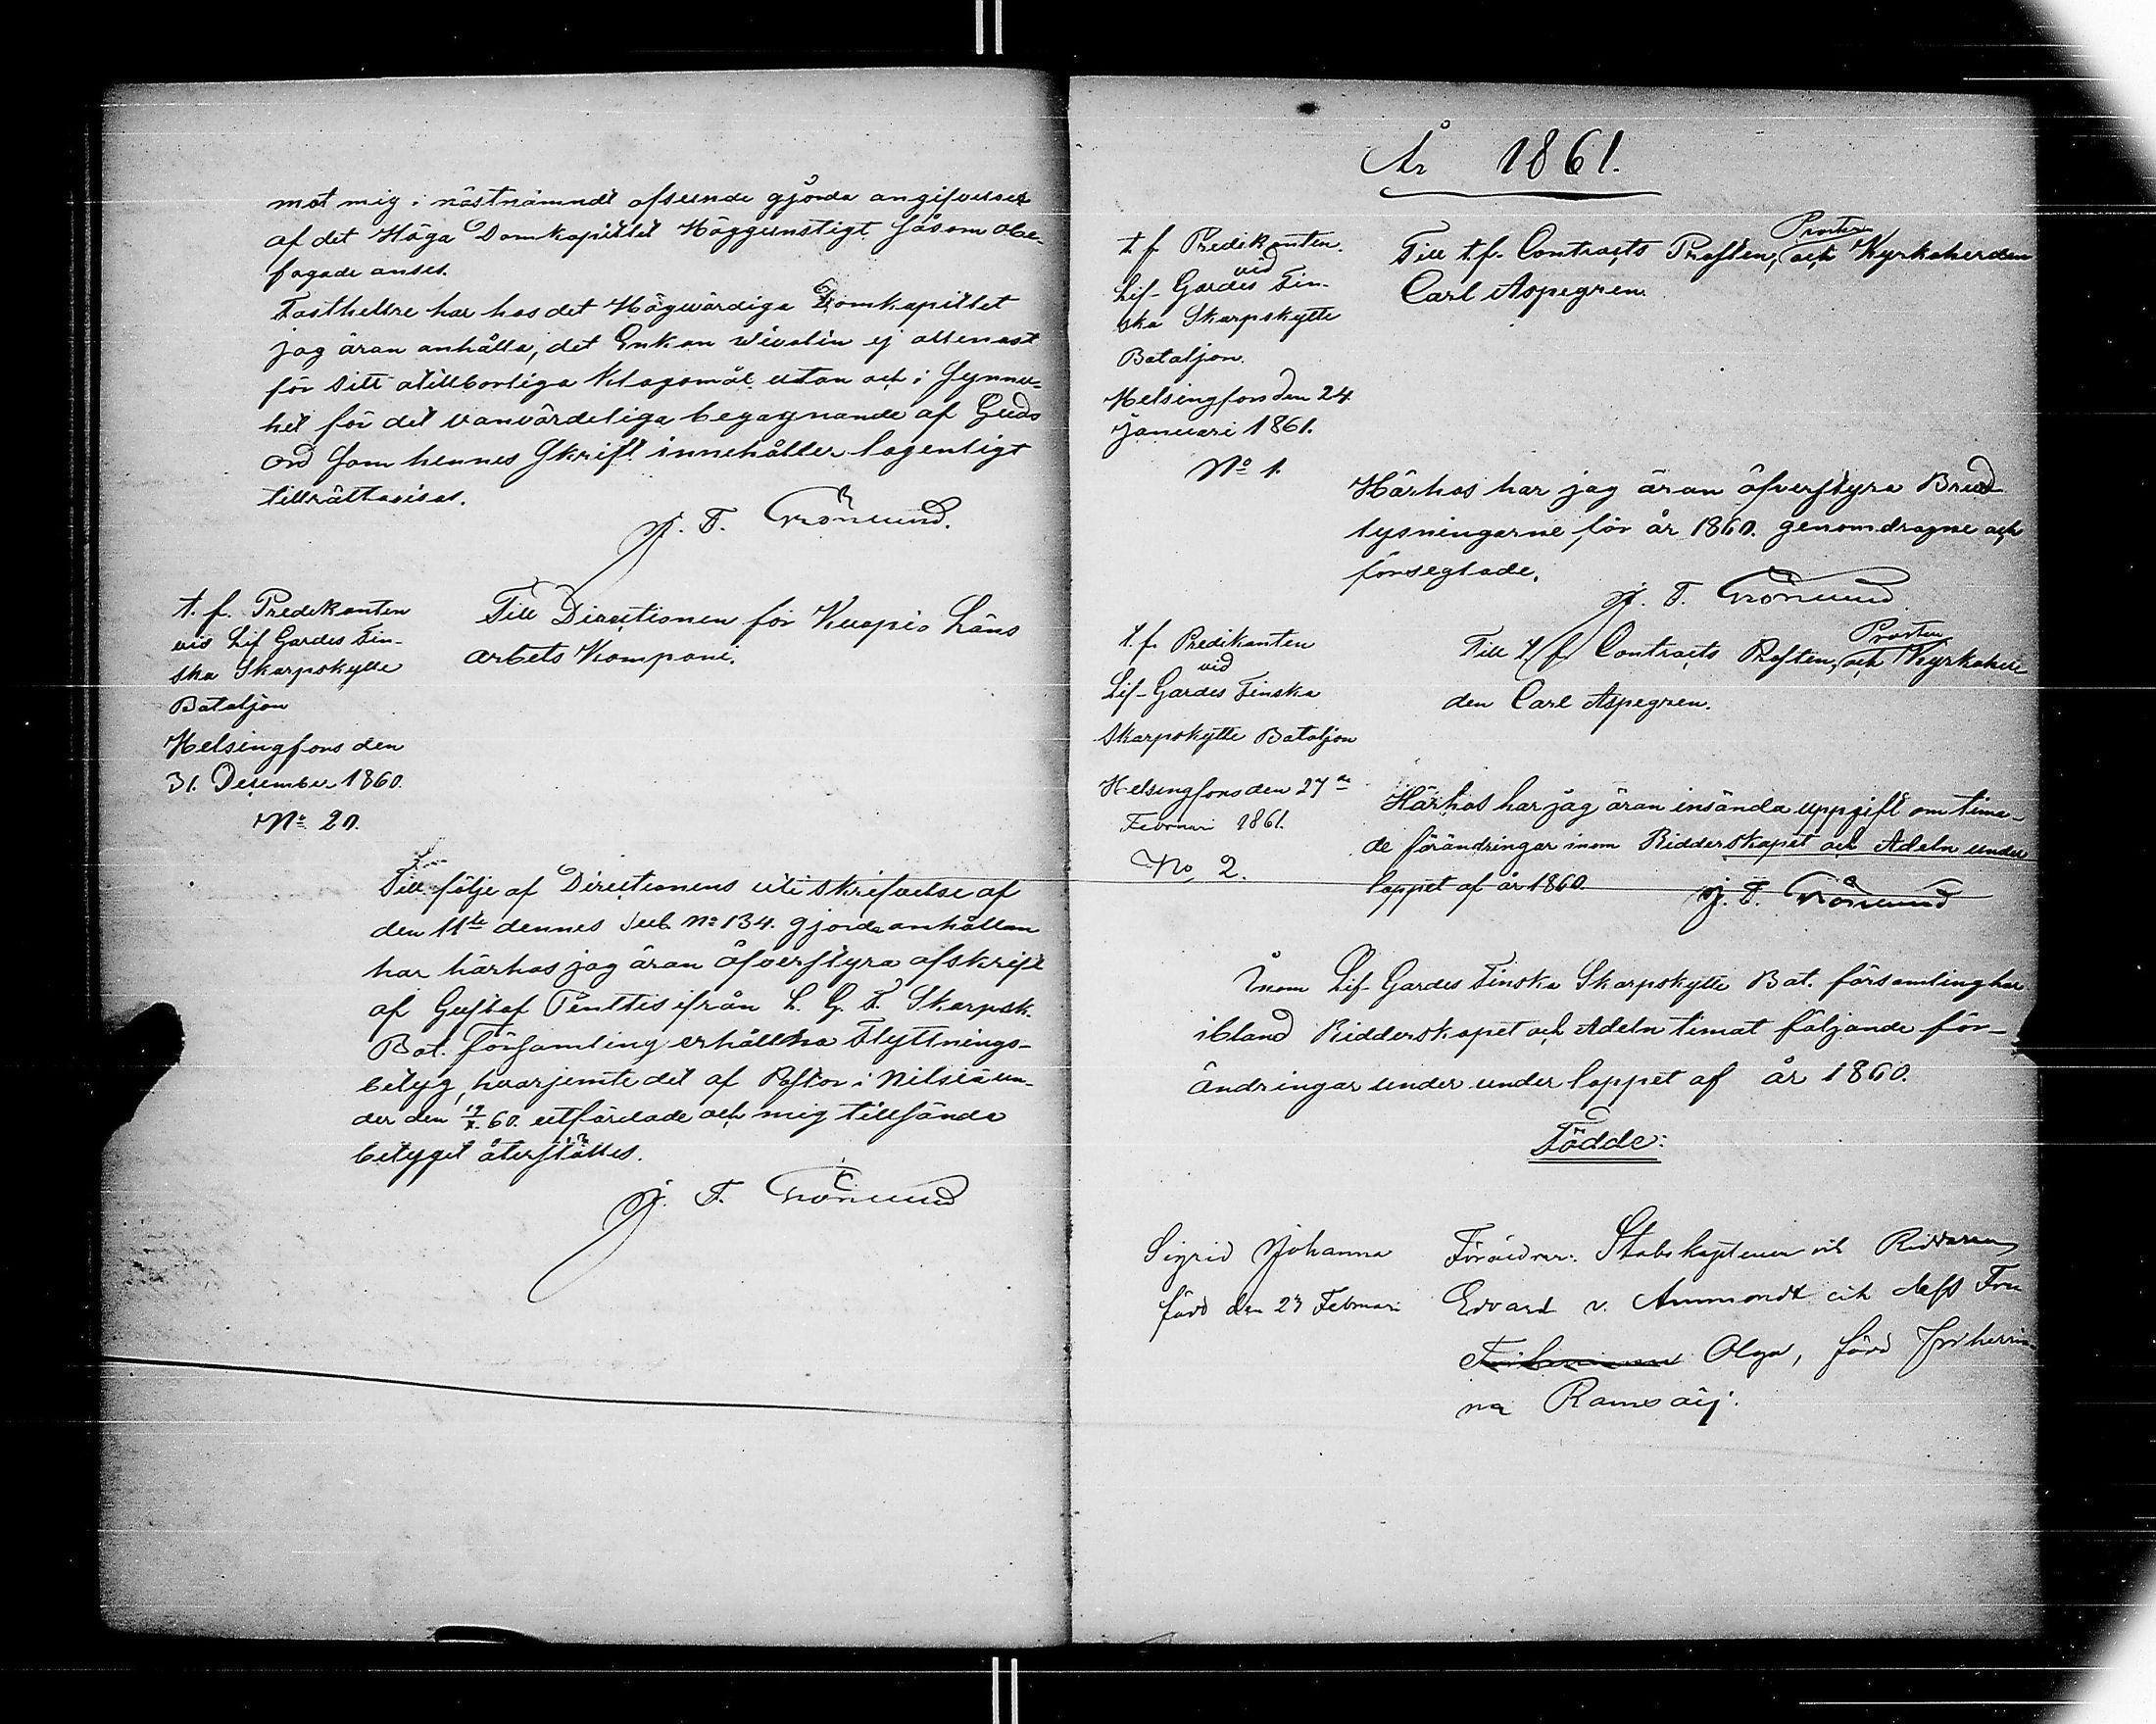 mot mig i nästnämndt afseende gjorde angifvelser
af det Höga Domkapitlet Höggunstigt såsom obe-
fogade anses.
Dasthellre har hos det Högvärdiga Domkapitlet
jag äran anhålla, det Enkan Wivolin ej allenast
för sitt otillbörliga klagomål utan och i synner-
het för det vanvördeliga begagnande af Guds
ord som hennes skrift innehåller lagenligt
tillrättavisas.
J. F. Grönlund.
t. f. Predikanten
vid Lif Gardes Fin-
ska Skarpskytte
Bataljon
Helsingfors den
31. December 1860.
No 20.
Till Directionen för Kuopio Läns
arbets Kompani.
Till följe af Directionens uti skrifvelse af
den 11te dennes sub No 134. gjorda anhållan
har härhos jag äran öfverstyra afskrift
af Gustaf Penttis ifrån L. G. F. Skarpsk.
Bat. Församling erhållna Flyttnings-
betyg, hvarjemte det af Pastor i Nilsiä un-
der den 19/X. 60. utfärdade och mig tillsända
betyget återställes.
J. F. Grönlund
År 1861.
t. f. Predikanten
vid
Lif-Gardes Fin-
ska Skarpskytte
Bataljon.
Helsingfors den 24
Januari 1861.
No 1.
Prosten
Till t. f. Contracts Prosten, och Kyrkoherden
Carl Aspegren.
Härhos har jag äran öfverstyra Brud
lysningarne för år 1860. genomdragne och
förseglade.
J. F. Grönlund
t. f. Predikanten
vid
Lif-Gardes Finska
Skarpskytte Bataljon
Helsingfors den 27de
Februari 1861.
No 2.
Prosten
Till t. f. Contracts Prosten, och Kyrkoher
den Carl Aspegren.
Härhos har jag äran insända uppgift om tima-
de förändringar inom Ridderskapet och Adeln under
loppet af år 1860.
J. F. Grönlund
Inom Lif-Gardes Finska Skarpskytte Bat. församling har
ibland Ridderskapet och Adeln timat följande för-
ändringar under under loppet af år 1860.
Födde:
Sigrid Johanna
född den 23 Februari
Föräldrar: Stabskaptenen och Riddaren
Edvard v. Ammondt och dess Fru
Olga, född Friherrin-
na Ramsaij.